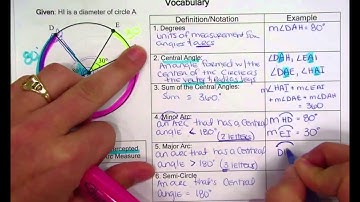 Vocabulary
Given: HI is a diameter of circle A.
D
E
80°
30°
Definition/Notation
Example
1. Degrees
units of measurement for
angles & arcs
m∠DAH = 80°
2. Central Angle:
An angle formed w/ the
center of the circle as
the vertex
∠DAH, ∠EAI
∠DAE, ∠HAI
3. Sum of the Central Angles:
sum = 360°
m∠HAI + m∠EAI
+ m∠DAE + m∠DAH
= 360
4. Minor Arc:
an Arc that has a central
angle < 180° (2 letters)
mHD = 80°
mEI = 30°
5. Major Arc:
an arc that has a central
angle > 180° (3 letters)
D
6. Semi-Circle
An arc that has a central
angle = 180°
Intercepted
Arc Measure